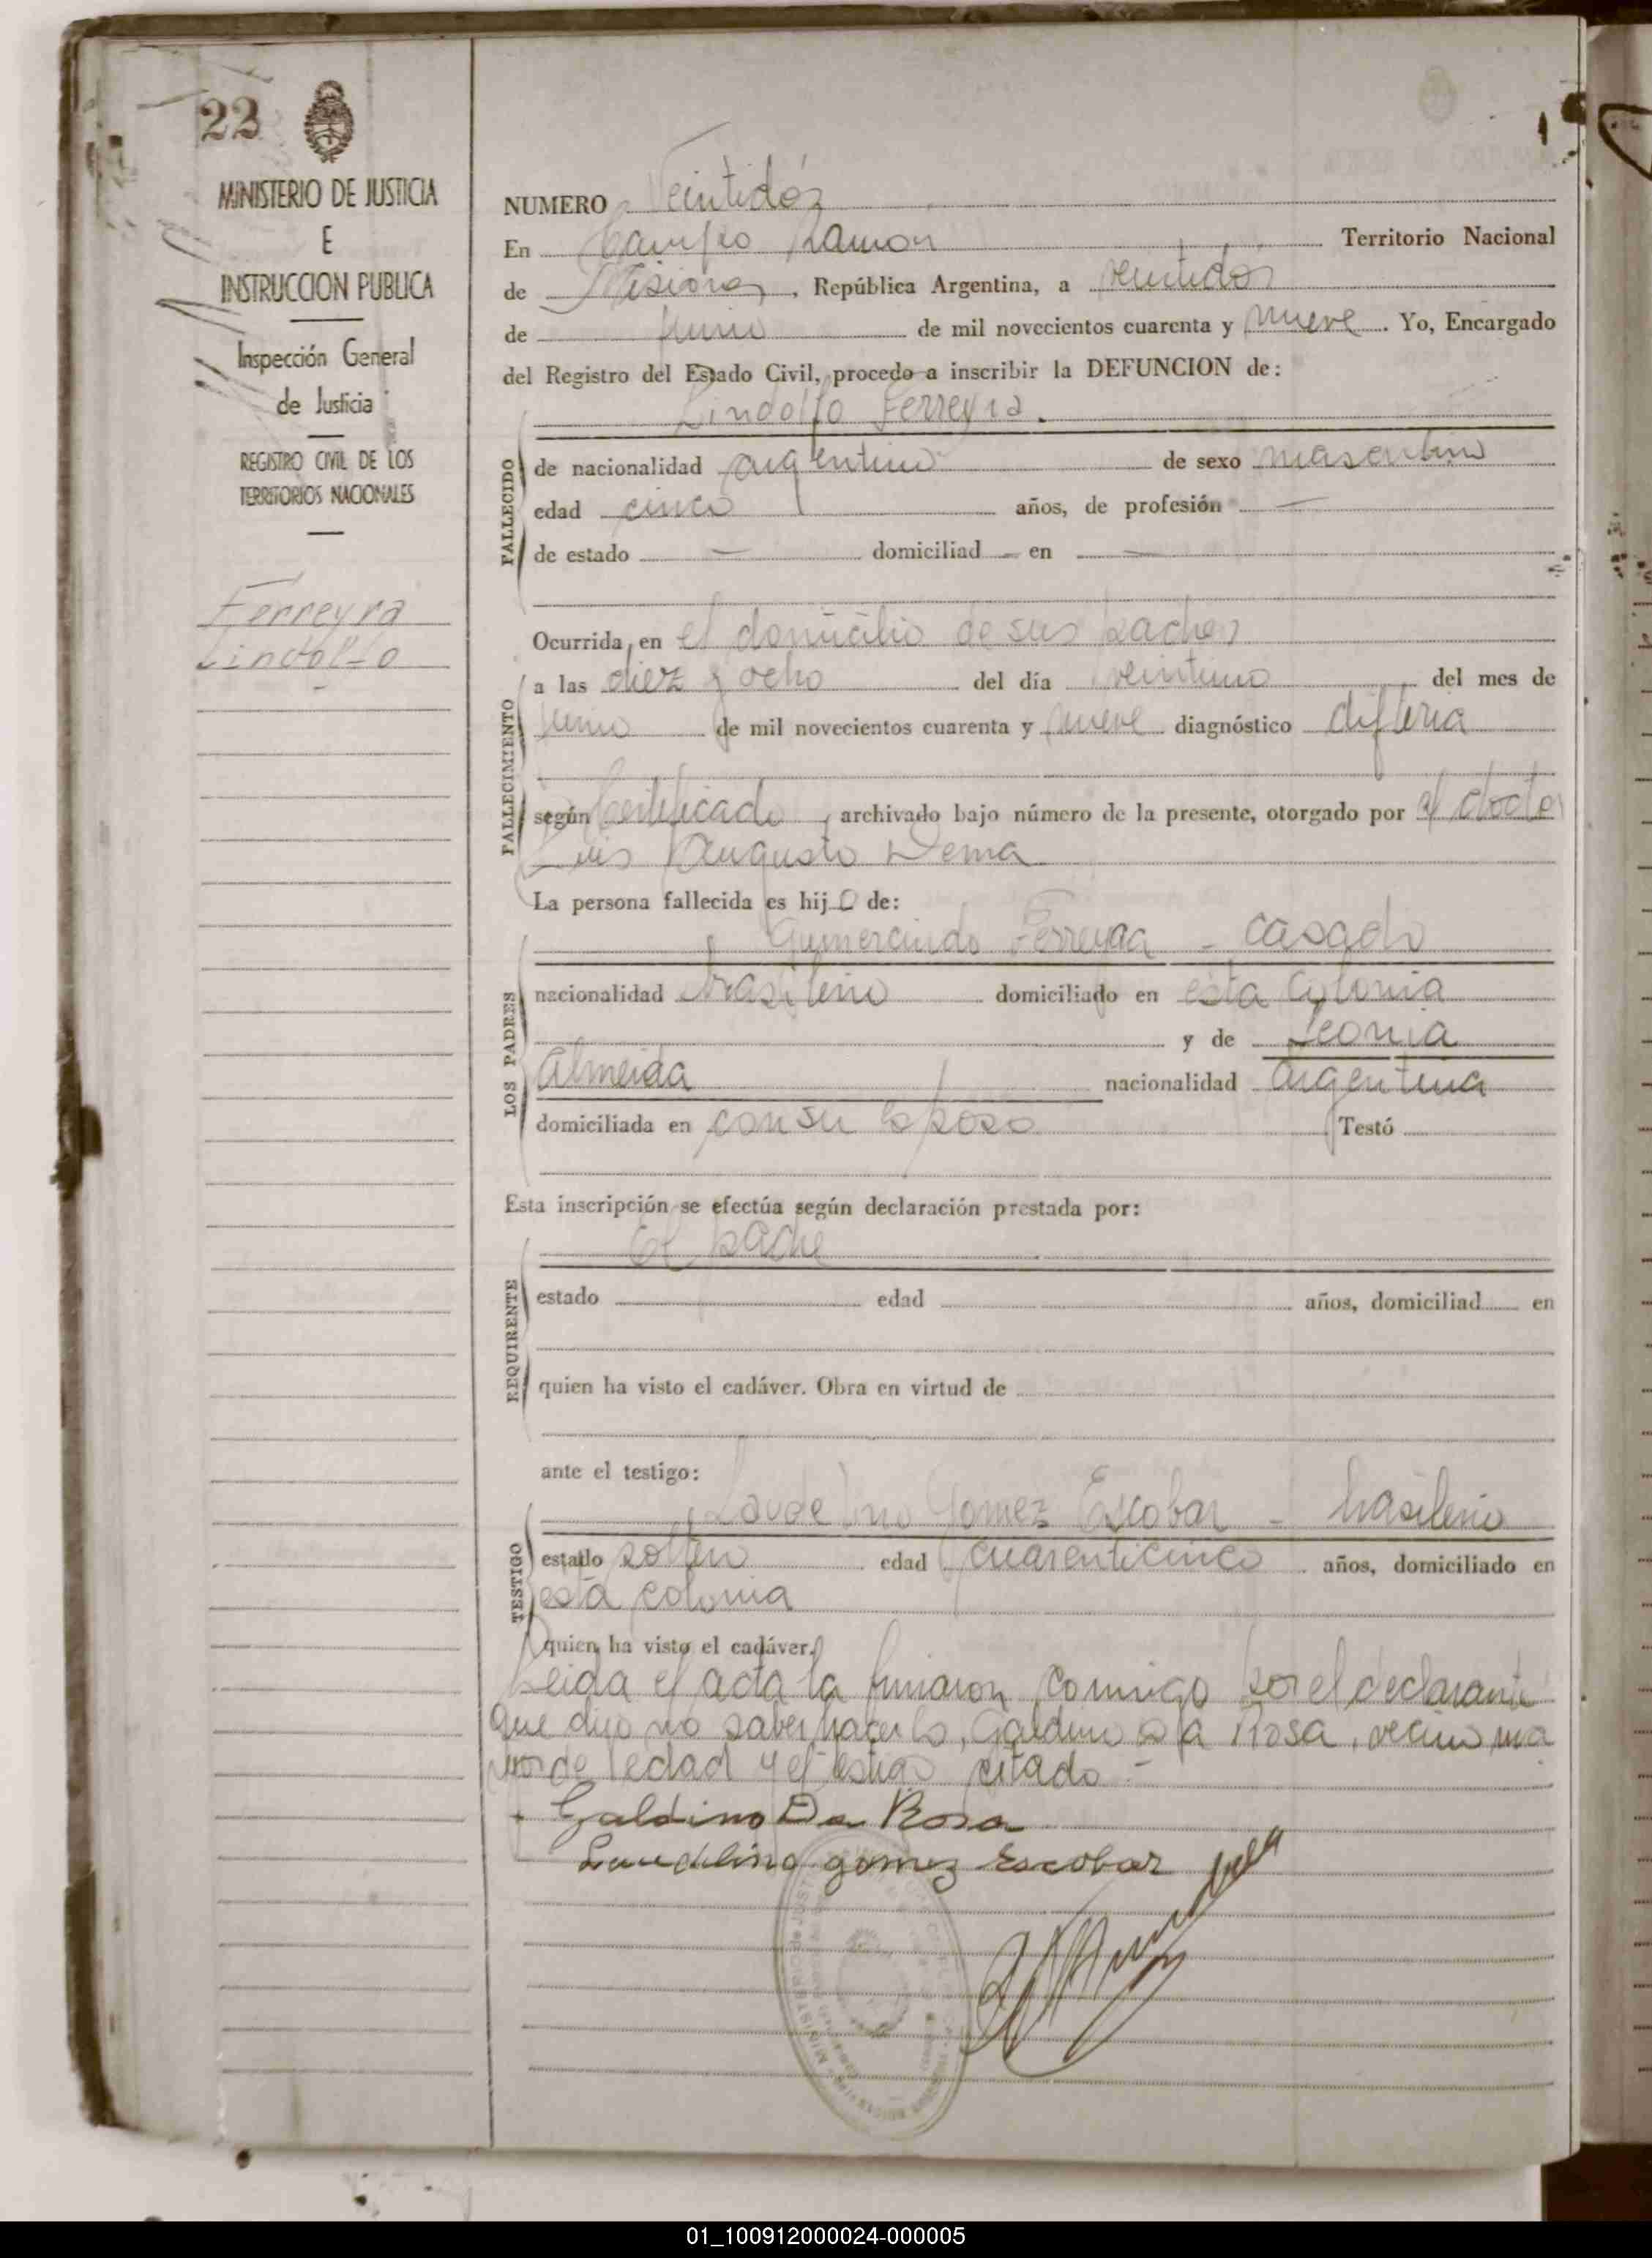 22
MINISTERIO DE JUSTICIA
E
INSTRUCCION PUBLICA
Inspección General
de Justicia
REGISTRO CIVIL DE LOS
TERRITORIOS NACIONALES
Ferreyra
Lindolfo
NUMERO Veintidós
En Campo Ramón Territorio Nacional
de Misiones, República Argentina, a veintidós
de junio de mil novecientos cuarenta y nueve. Yo, Encargado
del Registro del Estado Civil, procedo a inscribir la DEFUNCION de:
Lindolfo Ferreyra.
FALLECIDO
de nacionalidad argentino de sexo masculino
edad cinco años, de profesión —
de estado — domiciliad — en —
Ocurrida en el domicilio de sus padres
FALLECIMIENTO
a las diez y ocho del día veintiuno del mes de
junio de mil novecientos cuarenta y nueve diagnóstico difteria
según Certificado, archivado bajo número de la presente, otorgado por el doctor
Luis Augusto Dema
La persona fallecida es hijo de:
LOS PADRES
Gumercindo Ferreyra - casado
nacionalidad brasileño domiciliado en esta colonia
y de Leonia
Almeida nacionalidad argentina
domiciliada en con su esposo Testó
Esta inscripción se efectúa según declaración prestada por:
El padre
REQUIRENTE
estado edad años, domiciliad en
quien ha visto el cadáver. Obra en virtud de
ante el testigo:
Laudelino Gomez Escobar - brasileño
TESTIGO
estado soltero edad cuarenticinco años, domiciliado en
esta colonia
quien ha visto el cadáver.
Leida el acta la firmaron conmigo por el declarante
que dijo no saber hacerlo, Galdino Da Rosa, vecino ma
yor de edad y el testigo citado -
Galdino Da Rosa
Laudelino gomez Escobar
01_100912000024-000005